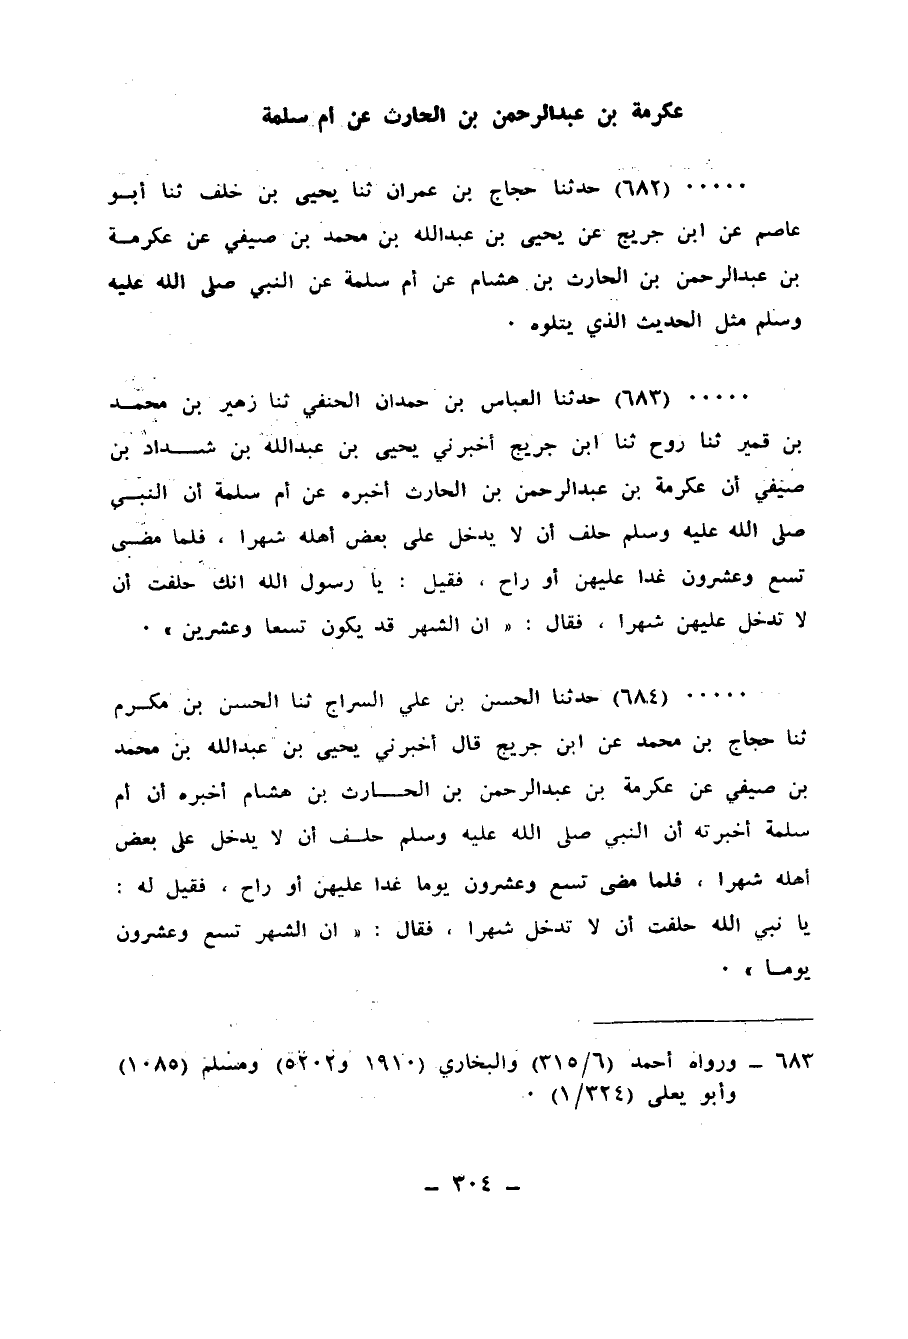 عكرمة بن عبدالرحمن بن الحارث عن أم سلمة
٠٠٠٠٠ (٦٨٢) حدثنا حجاج بن عمران ثنا يحيى بن خلف ثنا أبو
عاصم عن ابن جريج عن يحيى بن عبدالله بن محمد بن صيفي عن عكرمة
بن عبدالرحمن بن الحارث بن هشام عن أم سلمة عن النبي صلى الله عليه
وسلم مثل الحديث الذي يتلوه ٠
٠٠٠٠٠ (٦٨٣) حدثنا العباس بن حمدان الحنفي ثنا زهير بن محمد
بن قمير ثنا روح ثنا ابن جريج أخبرني يحيى بن عبدالله بن شداد بن
صيفي أن عكرمة بن عبدالرحمن بن الحارث أخبره عن أم سلمة أن النبي
صلى الله عليه وسلم حلف أن لا يدخل على بعض أهله شهرا ، فلما مضى
تسع وعشرون غدا عليهن أو راح ، فقيل : يا رسول الله انك حلفت أن
لا تدخل عليهن شهرا ، فقال : « ان الشهر قد يكون تسعا وعشرين » ٠
٠٠٠٠٠ (٦٨٤) حدثنا الحسن بن علي السراج ثنا الحسن بن مكرم
ثنا حجاج بن محمد عن ابن جريج قال أخبرني يحيى بن عبدالله بن محمد
بن صيفي عن عكرمة بن عبدالرحمن بن الحارث بن هشام أخبره أن أم
سلمة أخبرته أن النبي صلى الله عليه وسلم حلف أن لا يدخل على بعض
أهله شهرا ، فلما مضى تسع وعشرون يوما غدا عليهن أو راح ، فقيل له :
يا نبي الله حلفت أن لا تدخل شهرا ، فقال : « ان الشهر تسع وعشرون
يوما » ٠
٦٨٣ ـ ورواه أحمد (٣١٥/٦) والبخاري (١٩١٠ و٥٢٠٢) ومسلم (١٠٨٥)
وأبو يعلى (١/٣٢٤) ٠
ـ ٣٠٤ ـ